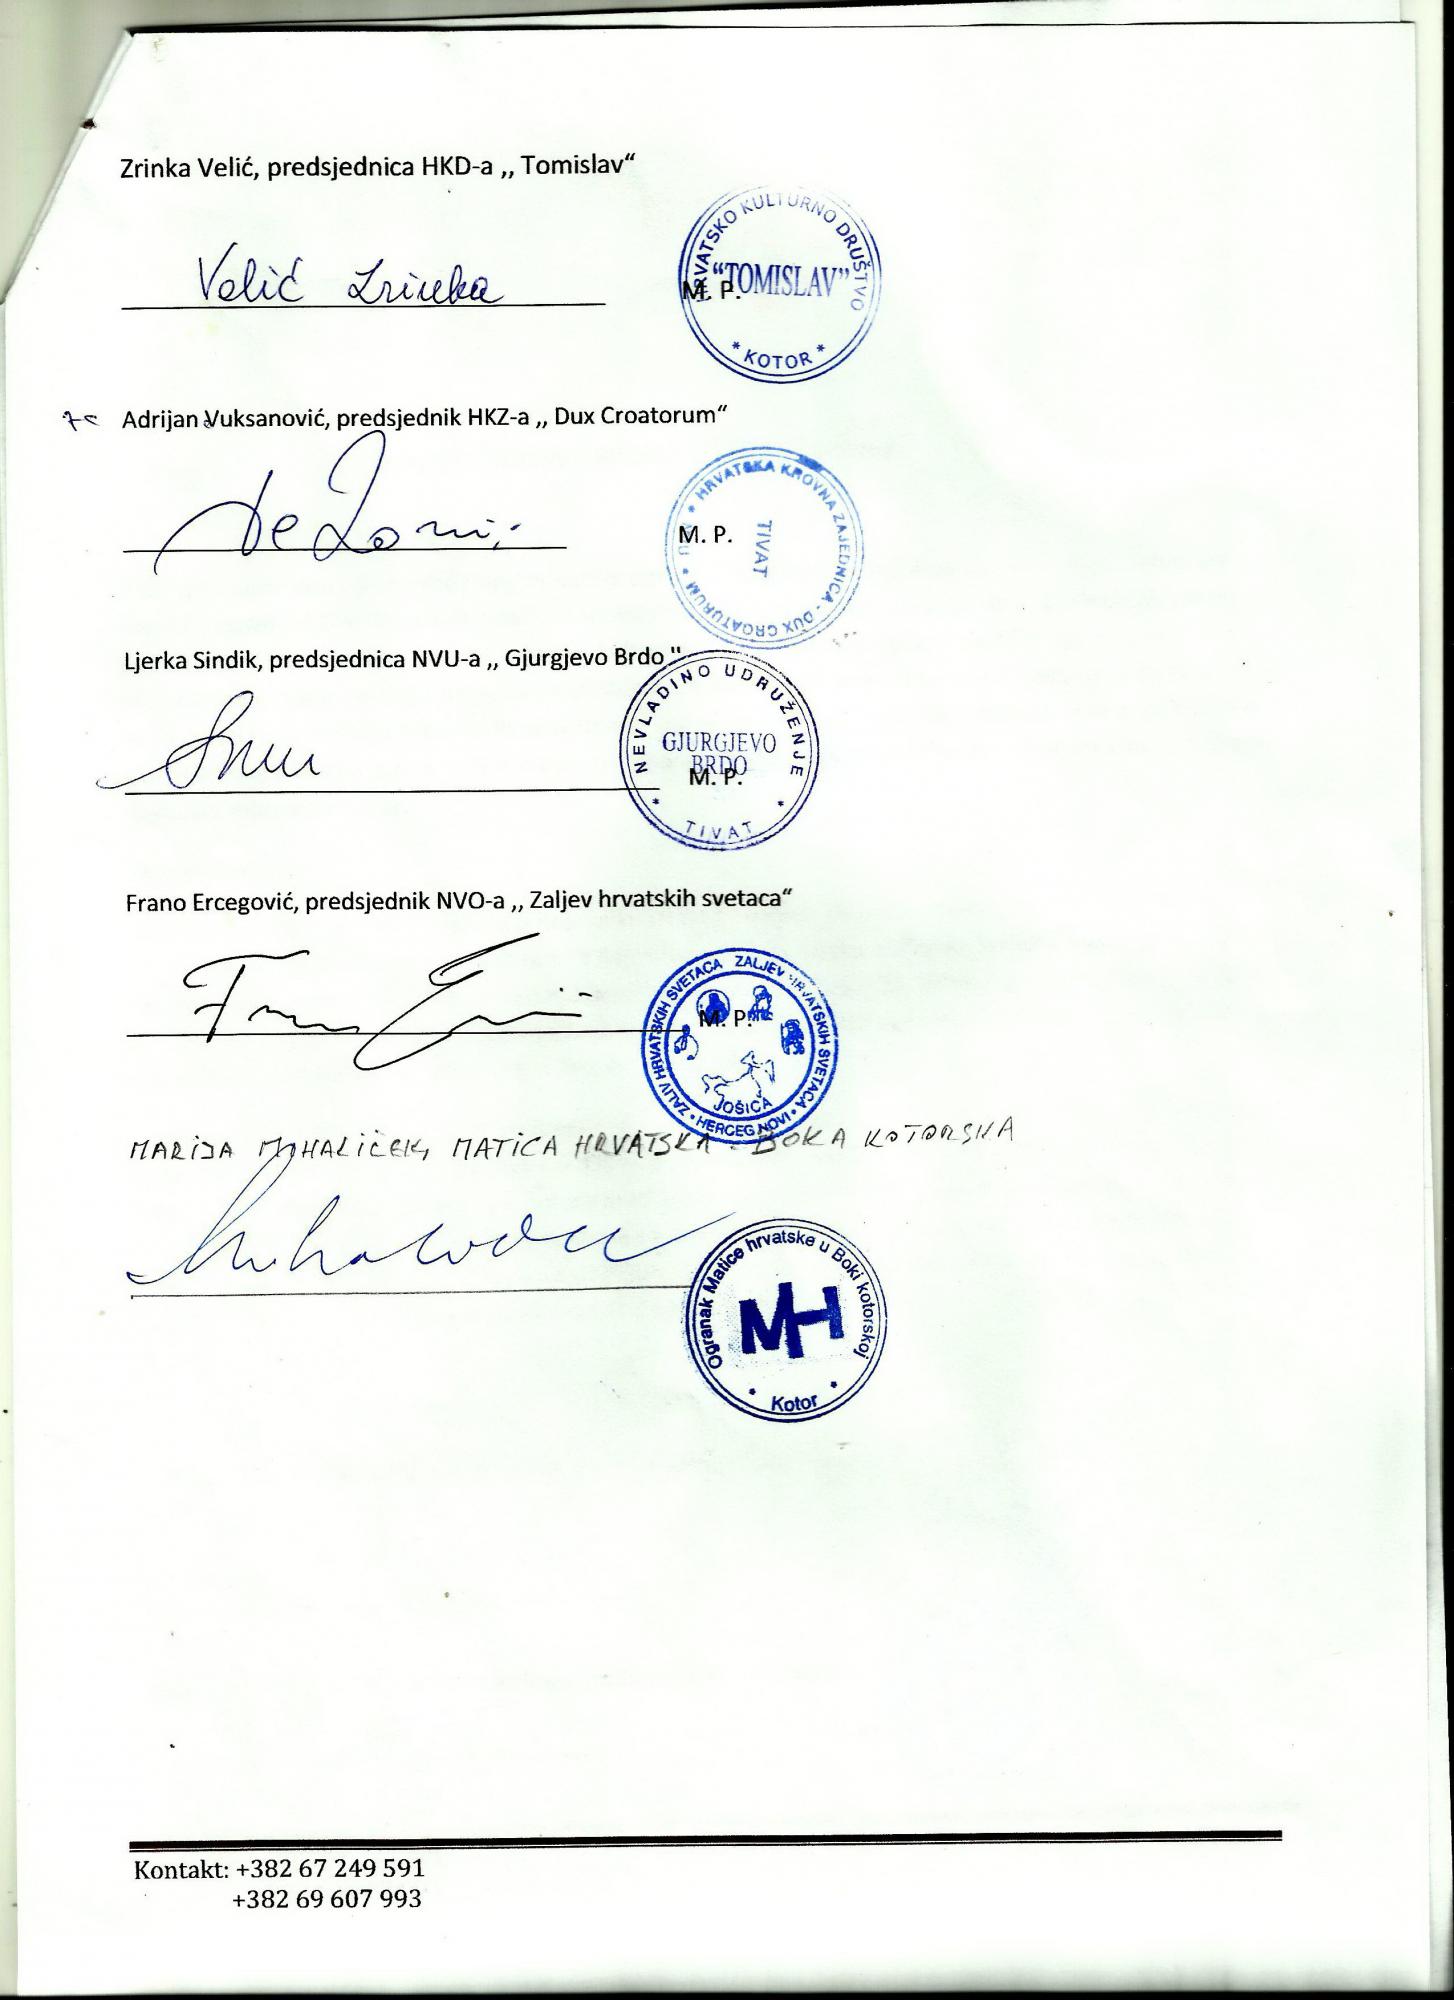 Zrinka Velić, predsjednica HKD-a ,, Tomislav“
Velić Zrinka
M. P.
HRVATSKO KULTURNO DRUŠTVO
“TOMISLAV”
* KOTOR *
Adrijan Vuksanović, predsjednik HKZ-a ,, Dux Croatorum“
M. P.
* HRVATSKA KROVNA ZAJEDNICA - DUX CROATORUM *
TIVAT
Ljerka Sindik, predsjednica NVU-a ,, Gjurgjevo Brdo "
NEVLADINO UDRUŽENJE
GJURGJEVO
BRDO
M. P.
* TIVAT *
Frano Ercegović, predsjednik NVO-a ,, Zaljev hrvatskih svetaca“
M. P.
ZALJEV HRVATSKIH SVETACA • HERCEG NOVI • ZALIV HRVATSKIH SVETACA
JOŠICA
MARIJA MIHALIČEK, MATICA HRVATSKA - BOKA KOTORSKA
Ogranak Matice hrvatske u Boki kotorskoj
MH
* Kotor *
Kontakt: +382 67 249 591
+382 69 607 993